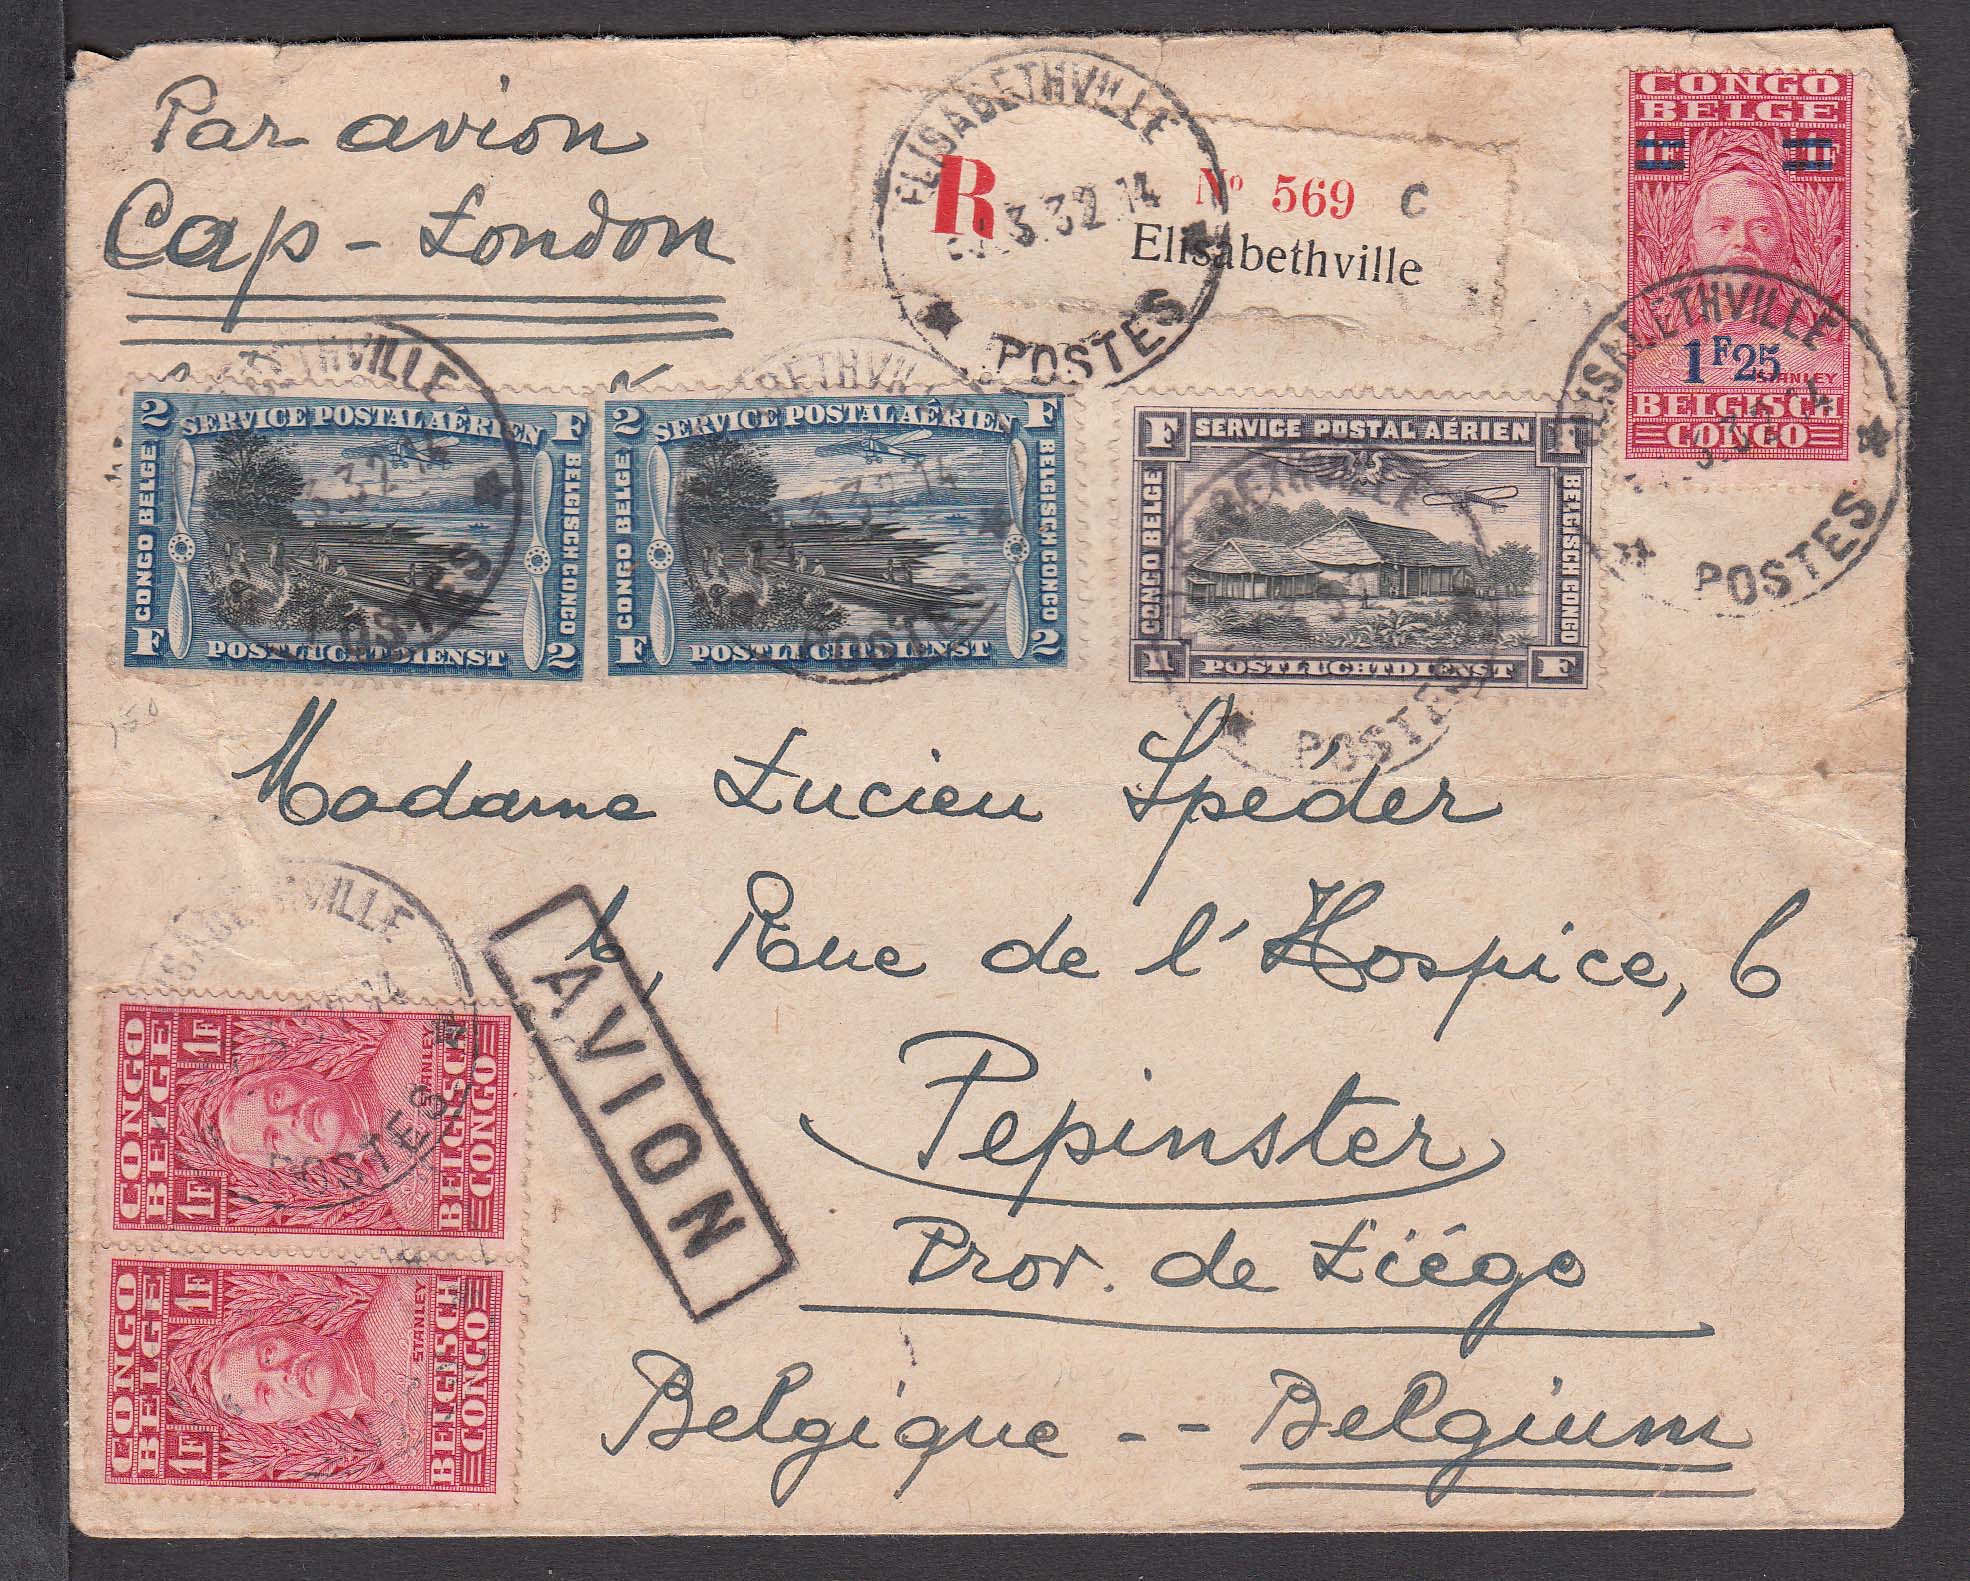 Par avion
Cap - London
R
Nº 569 C
Elisabethville
ELISABETHVILLE
3.32.14
POSTES
CONGO
BELGE
1F 1F
1F25
STANLEY
BELGISCH
CONGO
ELISABETHVILLE
POSTES
2 F
SERVICE POSTAL AÉRIEN
CONGO BELGE
BELGISCH CONGO
F 2
POSTLUCHTDIENST
3.32.14
POSTES
2 F
SERVICE POSTAL AÉRIEN
CONGO BELGE
BELGISCH CONGO
F 2
POSTLUCHTDIENST
3.32.14
POSTES
F 1
SERVICE POSTAL AÉRIEN
CONGO BELGE
BELGISCH CONGO
1 F
POSTLUCHTDIENST
POSTES
150
Madame Lucien Spéder
6, Rue de l'Hospice, 6
Pepinster
Prov. de Liége
Belgique -- Belgium
AVION
CONGO
BELGE
1F 1F
STANLEY
BELGISCH
CONGO
POSTES
CONGO
BELGE
1F 1F
STANLEY
BELGISCH
CONGO